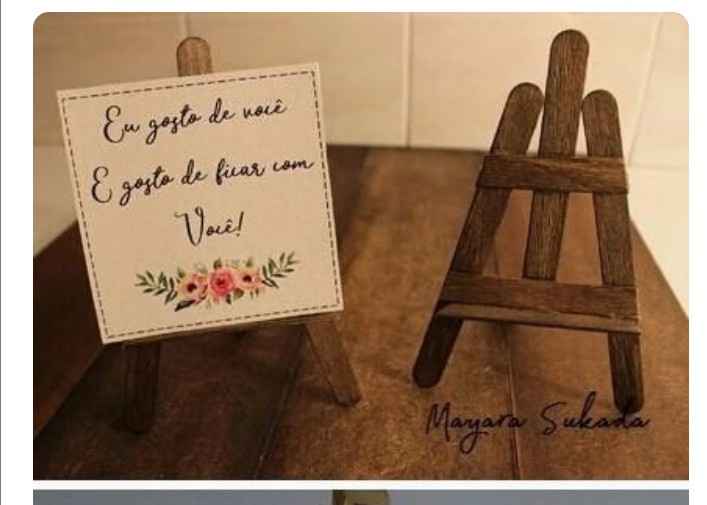 Eu gosto de você
E gosto de ficar com
Você!
Mayara Sukada